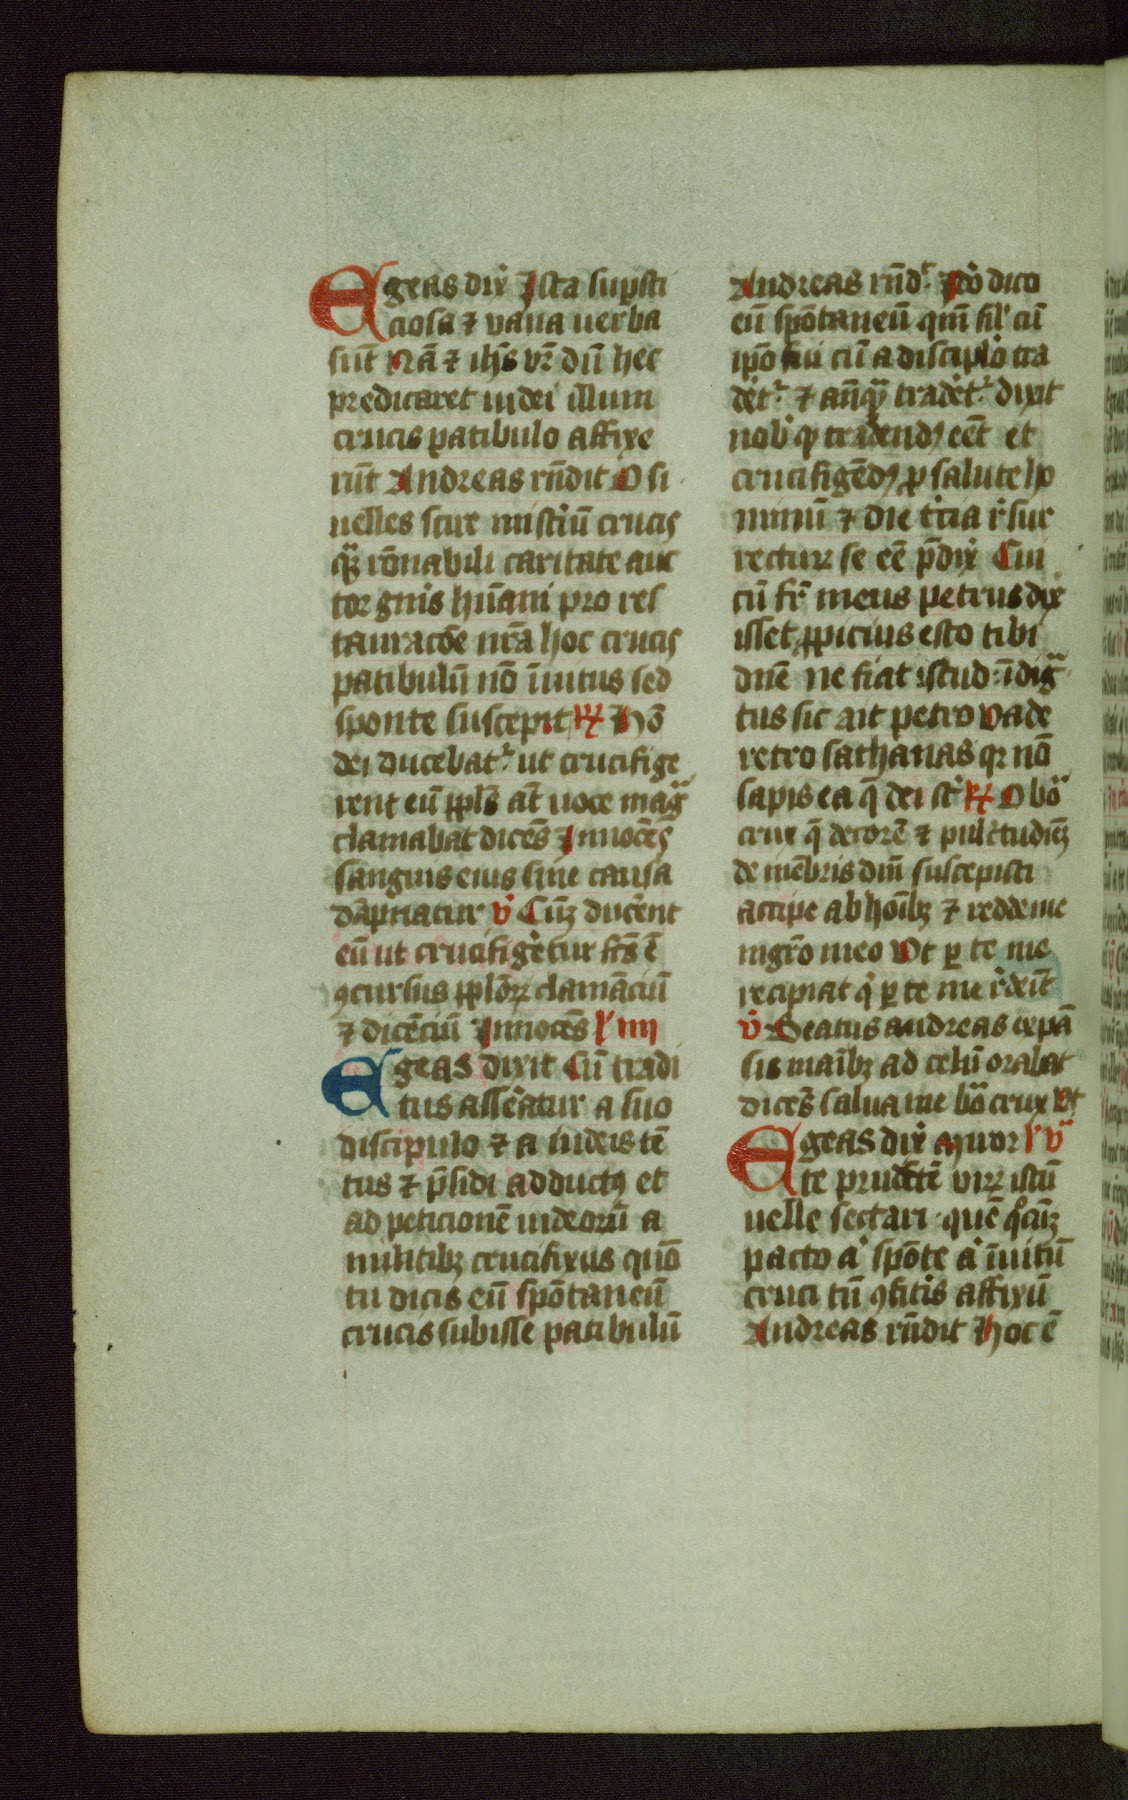 Egeas dix̉ Ista suꝑsti
ciosa ⁊ vana uerba
sūt Nā ⁊ ihs̄ vr̄ dū hec
predicaret iudei illum
crucis patibulo affixe
rūt Andreas rn̄dit O si
uelles scire mist̉iū crucis
qͣ rōnabili caritate auc
tor gn̉is hūani pro res
tauracōe nr̄a hoc crucis
patibulū nō īuitus sed
sponte suscepit ℟ Hō
dei ducebat᷑ ut crucifige
rent eū ppl̄s at̄ uoce magͣ
clamabat dicēs Innocēs
sanguis eius sine causa
dāpnatur v̉ Cūꝫ duc̉ent
eū ut crucifig̉etur fc̄s ē
ꝯcursus ppl̄oꝝ clamāciū
⁊ dicēciū Innocēs l̉ iiii
Egeas dixit Cū tradi
tus asserͣtur a suo
discipulo ⁊ a iudeis tē
tus ⁊ p̄sidi adductꝯ et
ad peticionē iudeorū a
militibꝫ crucifixus quō
tu dicis eū spōtaneū
crucis subisse patibulū
Andreas rn̄d᷑ Iō dico
eū spōtaneū qm̄ sil̉ cū
ip̄o fui cū a disciplo tra
det᷑ ⁊ an̄qͣ tradet᷑ dixit
nob̉ ꝙ tradendꝯ eēt et
crucifigēdꝯ ꝓ salute ho
minū ⁊ die t̉cia r̉sur
recturꝝ se eē p̄dix̉ Cui
cū fr̄ meus petrus dix
isset ꝓpicius esto tibi
dn̄e ne fiat istud īdigͣ
tus sic ait petro Vade
retro sathanas qꝛ nō
sapis ea q̄ dei st̄ ℟ O boͣ
crux q̄ decorē ⁊ pulc̉tudīeꝫ
de mēbris dn̄i suscepisti
accipe ab hoīibꝫ ⁊ redde me
mgr̄o meo Vt ꝑ te me
recipiat qͥ ꝑ te me r̉deīt
v̉ Beatus andreas expā
sis maībꝫ ad celū orabat
dicēs salua me boͣ crux Vt
Egeas dix̉ Miror l̉ vͣ
te prudētē virꝝ istū
uelle sectari quē qͦcūꝫ
pacto aͥ spōte aͥ īuitū
cruci tn̄ ꝯfit̉is affixū
Andreas rn̄dit Hoc ē